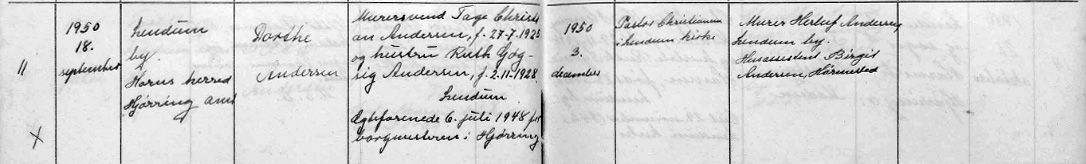 11
X
1950
18.
september
Lendum
by.
Horns herred
Hjørring amt
Dorthe
Andersen
Murersvend Tage Christi
an Andersen, f. 27-7-1925
og hustru Ruth Gøg-
sig Andersen, f. 2.11.1928
Lendum
Ægteviede 6. juli 1948 for
borgmesteren i Hjørring
1950
3.
december
Pastor Christiansen
i Lendum kirke
Murer Herluf Andersen
Lendum by.
Husassistent Birgit
Andersen, Hørmested